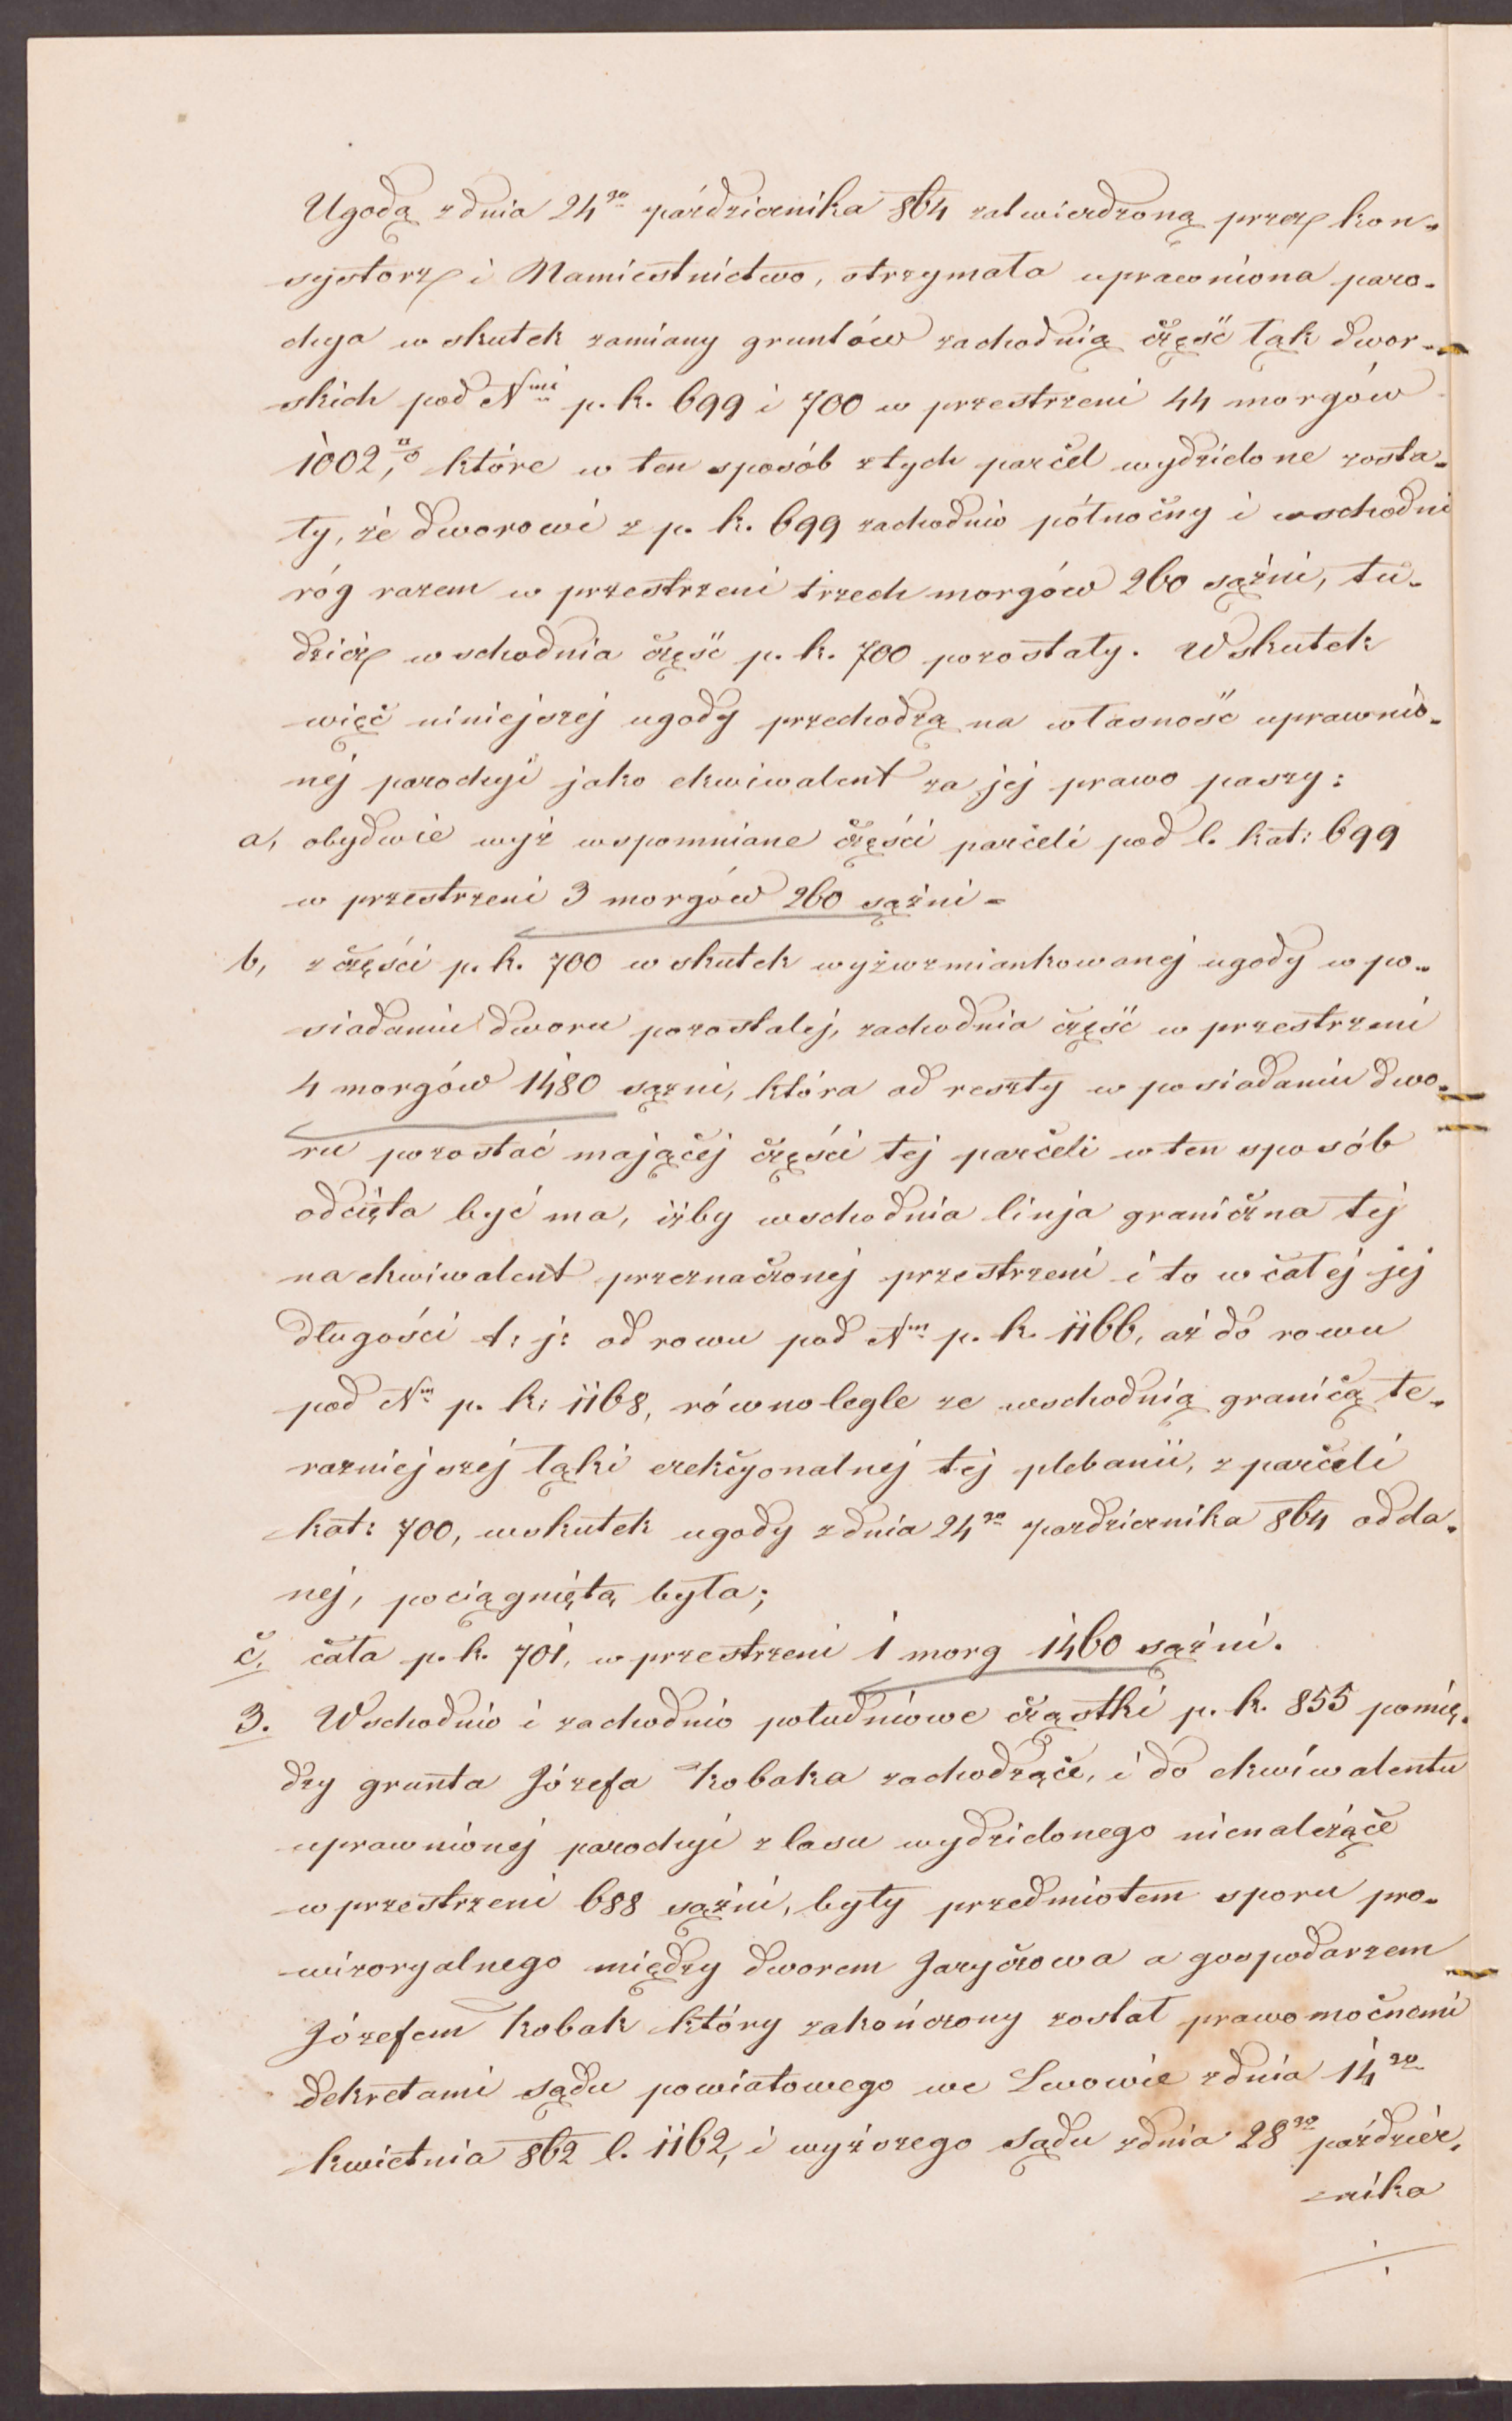 Ugodą z dnia 24go października 864 zatwierdzoną przez kon-
systorz i Namiestnictwo, otrzymała uprawniona paro-
chya w skutek zamiany gruntów zachodnią część łąk dwor-
skich pod Nmi p. k. 699 i 700 w przestrzeni 44 morgów
1002□°, które w ten sposób z tych parcel wydzielone zosta-
ły, że dworowi z p. k. 699 zachodnio północny i wschodni
róg razem w przestrzeni trzech morgów 260 sążni, tu-
dzież wschodnia część p. k. 700 pozostały. W skutek
więc niniejszej ugody przechodzą na własność uprawnio-
nej parochyi jako ekwiwalent za jej prawo paszy:
a, obydwie wyż wspomniane części parceli pod l. kat: 699
w przestrzeni 3 morgów 260 sążni -
b, z części p. k. 700 w skutek wyżwzmiankowanej ugody w po-
siadaniu dworu pozostałej, zachodnia część w przestrzeni
4 morgów 1480 sążni, która od reszty w posiadaniu dwo-
ru pozostać mającej części tej parceli w ten sposób
odcięta być ma, iżby wschodnia linja graniczna tej
na ekwiwalent przeznaczonej przestrzeni i to w całej jej
długości t: j: od rowu pod Nm p. k. 1166, aż do rowu
pod Nm p. k. 1168, równolegle ze wschodnią granicą te-
razniejszej łąki erekcyonalnej tej plebanii, z parceli
kat: 700, wskutek ugody z dnia 24go pazdziernika 864 odda-
nej, pociągniętą była;
c, cała p. k. 701, w przestrzeni 1 morg 1460 sążni.
3. Wschodnio i zachodnio południowe cząstki p. k. 855 pomię-
dzy grunta Józefa Kobaka zachodzące, i do ekwiwalentu
uprawnionej parochyi z lasu wydzielonego nienależące
w przestrzeni 688 sążni, były przedmiotem sporu pro-
wizoryalnego między dworem Jaryczowa a gospodarzem
Józefem Kobak który zakończony został prawomocnemi
dekretami sądu powiatowego we Lwowie z dnia 14go
kwietnia 862 l. 1162, i wyższego sądu z dnia 28go paździer-
nika